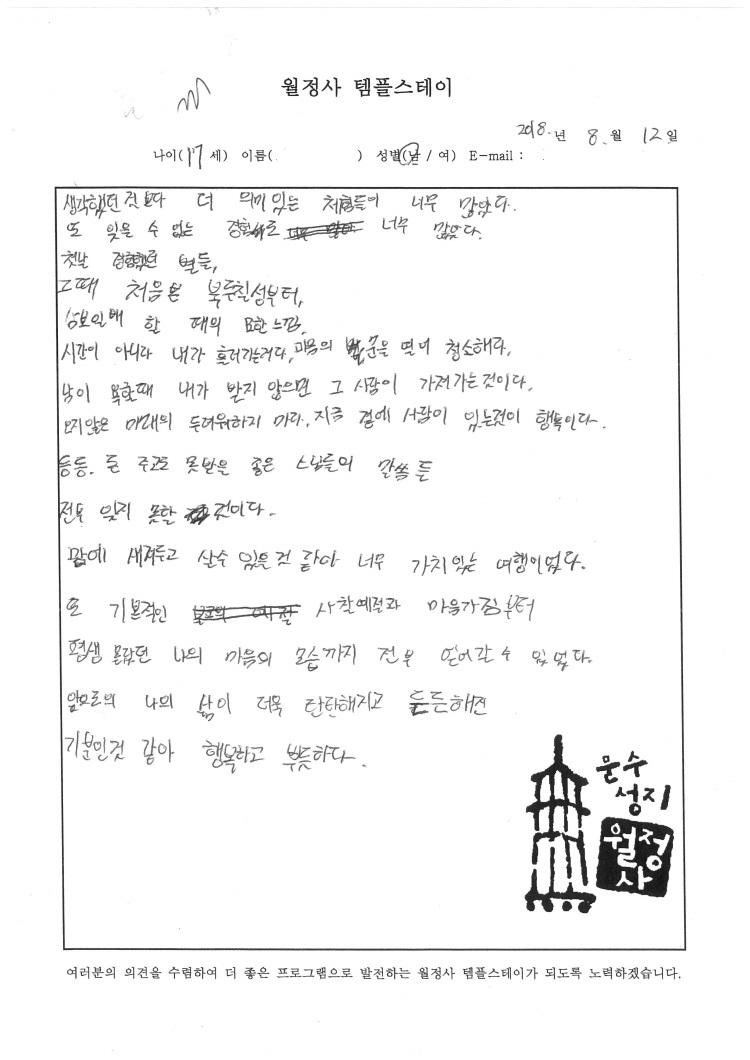 월정사 템플스테이
2018. 년 8. 월 12 일
나이( 17 세) 이름( ) 성별(남 / 여) E-mail :
생각했던것 보다 더 의미 있는 체험들이 너무 많았다.
또 잊을 수 없는 경험들도 너무 많았다.
첫날 경험했던 별들,
그때 처음 본 북두칠성부터,
삼보일배 할 때의 묘한 느낌,
시간이 아니라 내가 흘러가는거다, 마음의 창문을 열어 청소해라,
남이 욕할때 내가 받지 않으면 그 사람이 가져가는것이다,
오지않은 미래의 두려워하지 마라, 지금 곁에 사람이 있는것이 행복이다.
등등. 돈 주고도 못받을 좋은 스님들의 말씀 등
전부 잊지 못할 것이다.
맘에 새겨두고 살수 있는 것 같아 너무 가치있는 여행이었다.
또 기본적인 사찰예절과 마음가짐부터
평생 몰랐던 나의 마음의 모습까지 전부 얻어갈 수 있었다.
앞으로의 나의 삶이 더욱 탄탄해지고 든든해진
기분인것 같아 행복하고 뿌듯하다.
문수
성지
월정
사
여러분의 의견을 수렴하여 더 좋은 프로그램으로 발전하는 월정사 템플스테이가 되도록 노력하겠습니다.